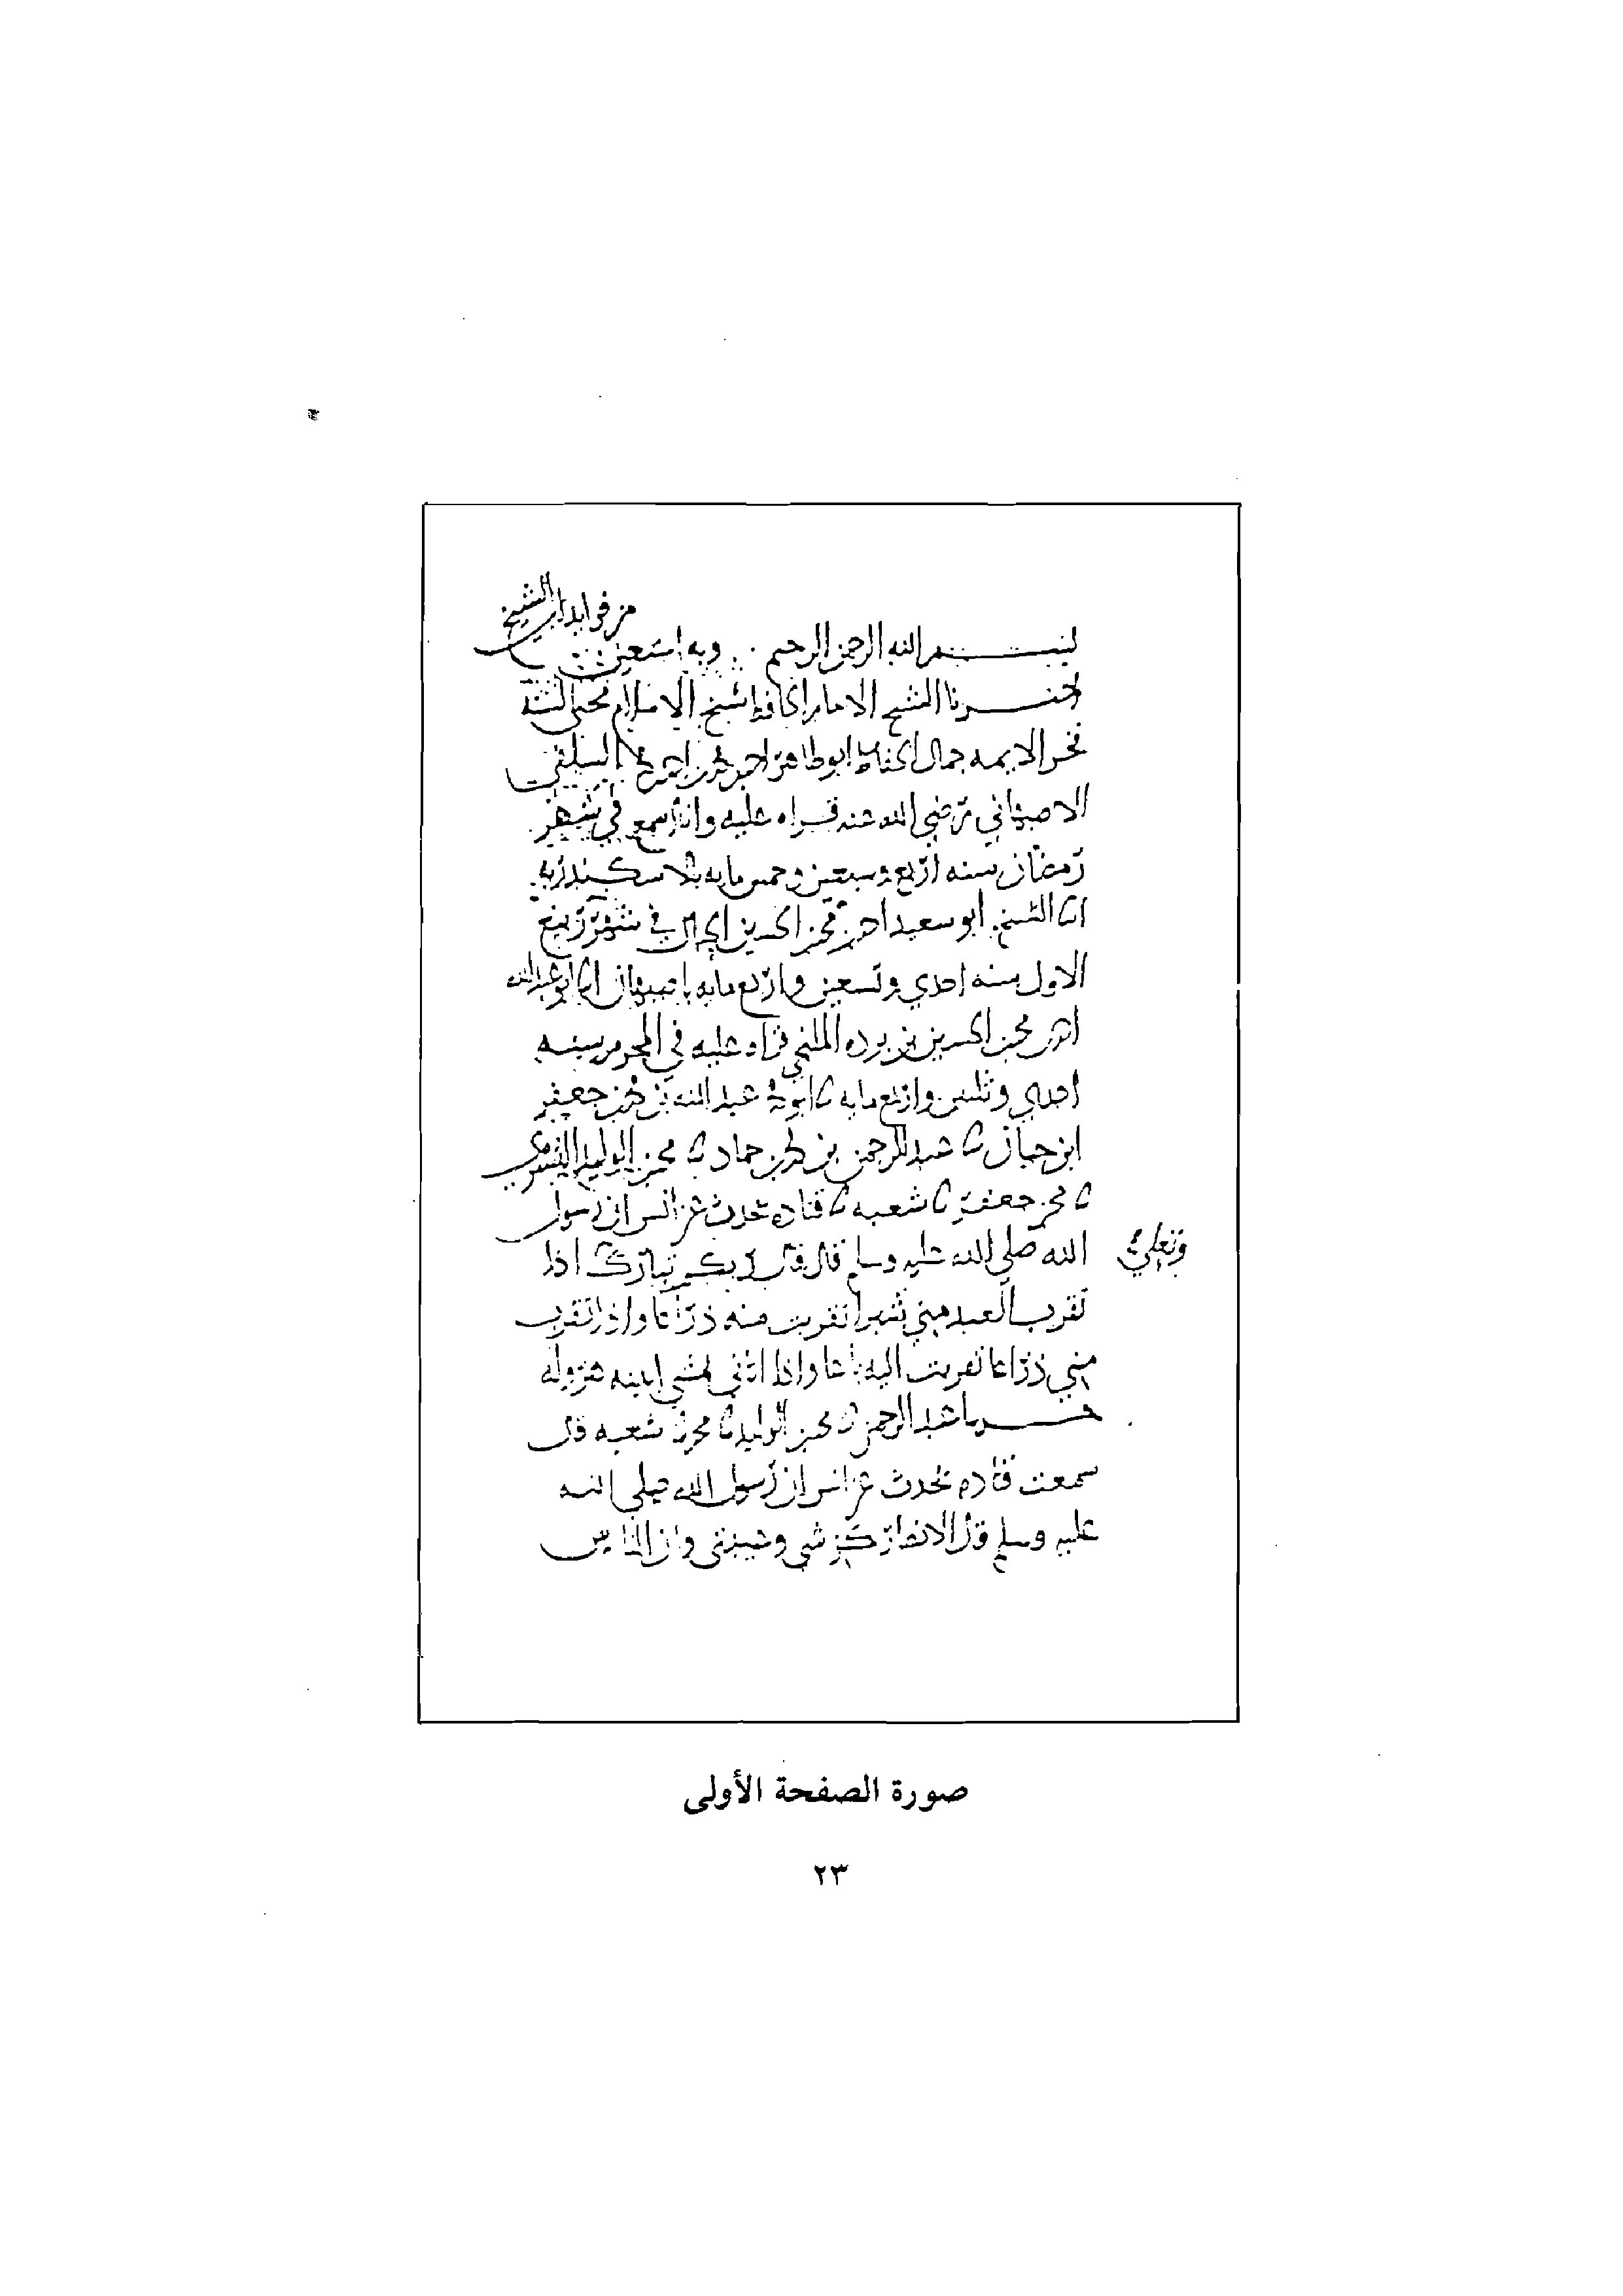 من فوايد ابي الشيخ
بسم الله الرحمن الرحيم وبه استعين
اخبرنا الشيخ الامام الحافظ شيخ الاسلام محيي السنة
فخر الايمه جمال الحفاظ ابو طاهر احمد بن محمد بن احمد بن محمد السلفي
الاصبهاني رضي الله عنه قراه عليه وانا اسمع في شهر
رمضان سنه اربع وسبعين وخمس مايه بالاسكندريه
انا الشيخ ابو سعيد احمد بن محمد بن الحسين في شهر ربيع
الاول سنه احدي وتسعين واربع مايه باصبهان انا ابو عبدالله
احمد بن محمد بن الحسين بن يزده الملنجي قراه عليه في المحرم سنه
احدي وثلثين واربع مايه نا ابو محمد عبد الله بن محمد بن جعفر
ابن حيان نا عبد الرحمن بن محمد بن حماد نا محمد بن الوليد البسري
نا محمد بن جعفر نا شعبه نا قتاده يحدث عن انس ان رسول
الله صلي الله عليه وسلم قال قال ربكم تبارك اذا
وتعلي
تقرب العبد مني شبرا تقربت منه ذراعا واذا تقرب
مني ذراعا تقربت اليه باعا واذا اتاني يمشي اتيته هروله
حدثنا عبد الرحمن نا محمد بن الوليد نا محمد نا شعبه قال
سمعت قتاده يحدث عن انس ان رسول الله صلي الله
عليه وسلم قال الانصار كرشي وعيبتي وان الناس
صورة الصفحة الأولى
٢٣